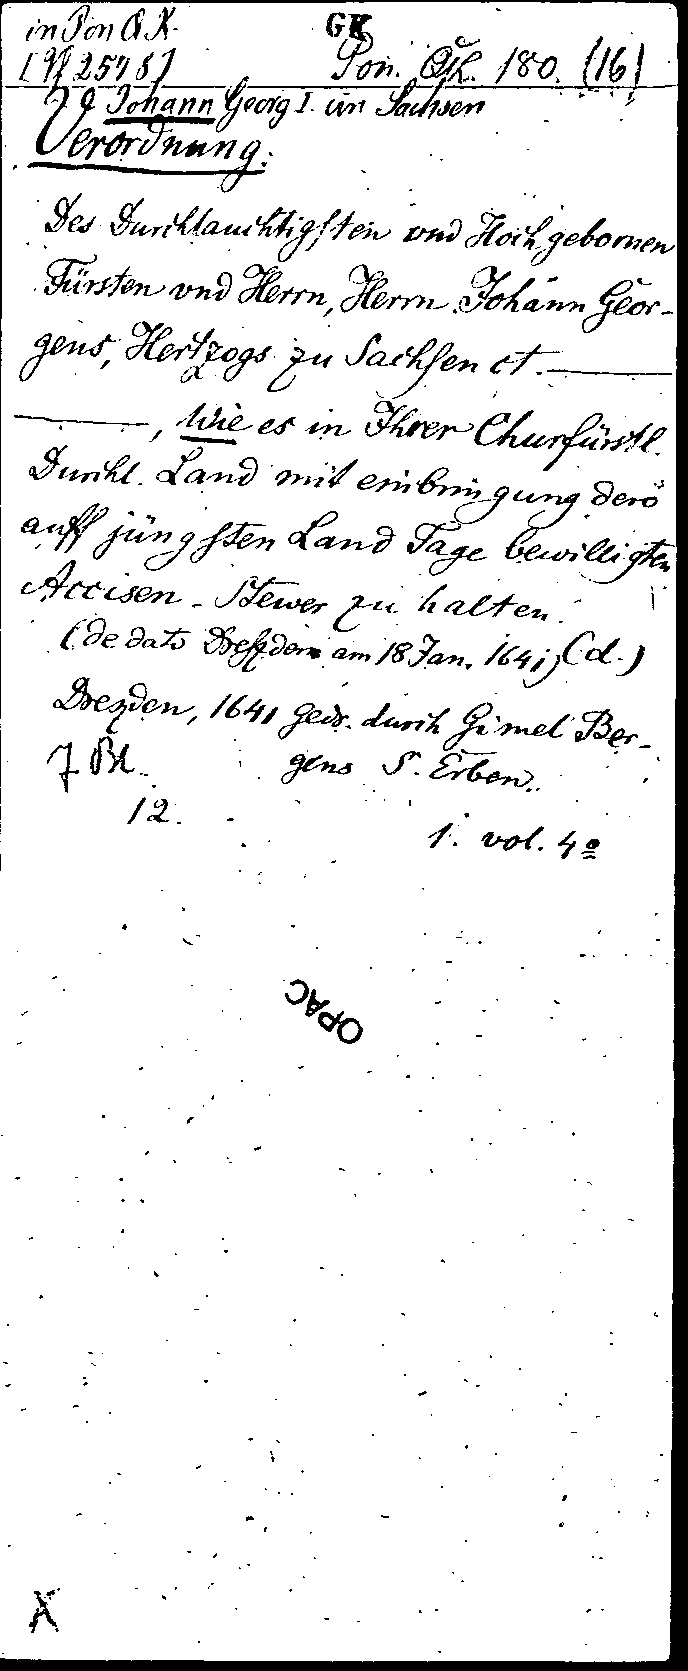 in Pon Qk.
GK
Pon. Qk. 180. (16)
Johann Georg I. von Sachsen
Verordnung:
Des Durchlauchtigsten vnd Hochgebornen
Fürsten vnd Herrn, Herrn Johann Geor-
gens, Hertzogs zu Sachsen ct. ———
———, Wie es in Ihrer Churfürstl.
Durchl. Land mit einbringung derö
auff jüngsten Land Tage bewilligten
Accisen-Stewer zu halten.
(de dato Dreßden am 18 Jan. 1641) (d.)
Dreßden, 1641 gedr. durch Gimel Ber-
gens S. Erben.
7 Bl.
12.
1. vol. 4º
OPAC
X